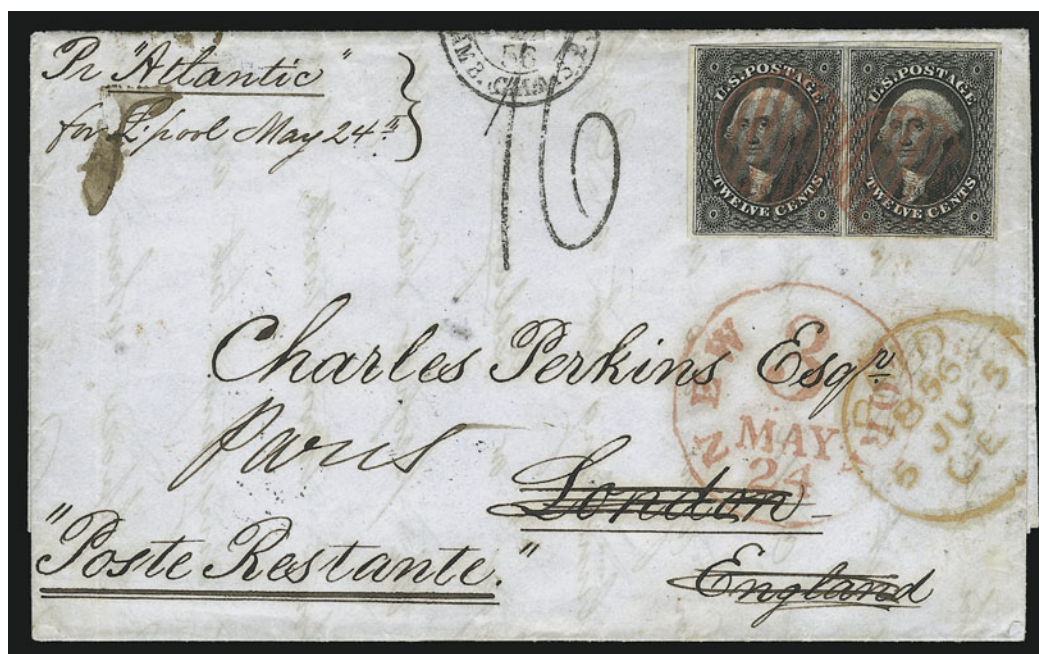 Pr "Atlantic"
for L'pool May 24th
56
16
U.S. POSTAGE
TWELVE CENTS
U.S. POSTAGE
TWELVE CENTS
Charles Perkins Esqr.
Paris
London
England
"Poste Restante."
NEW YORK
8
MAY
24
PAID
1856
5 JU 5
CE